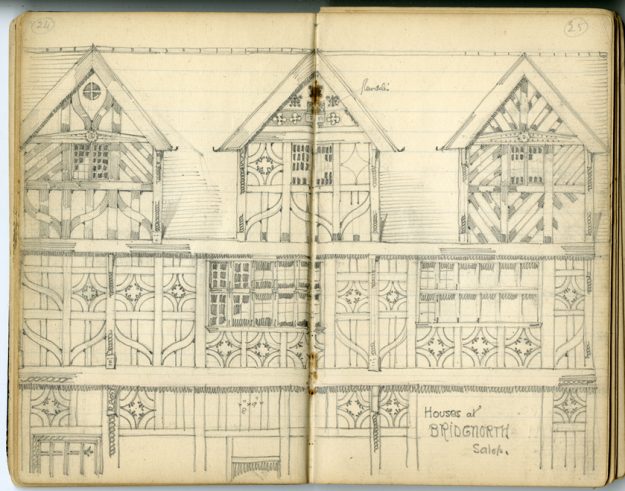 24
25
Houses at
BRIDGNORTH
Salop.